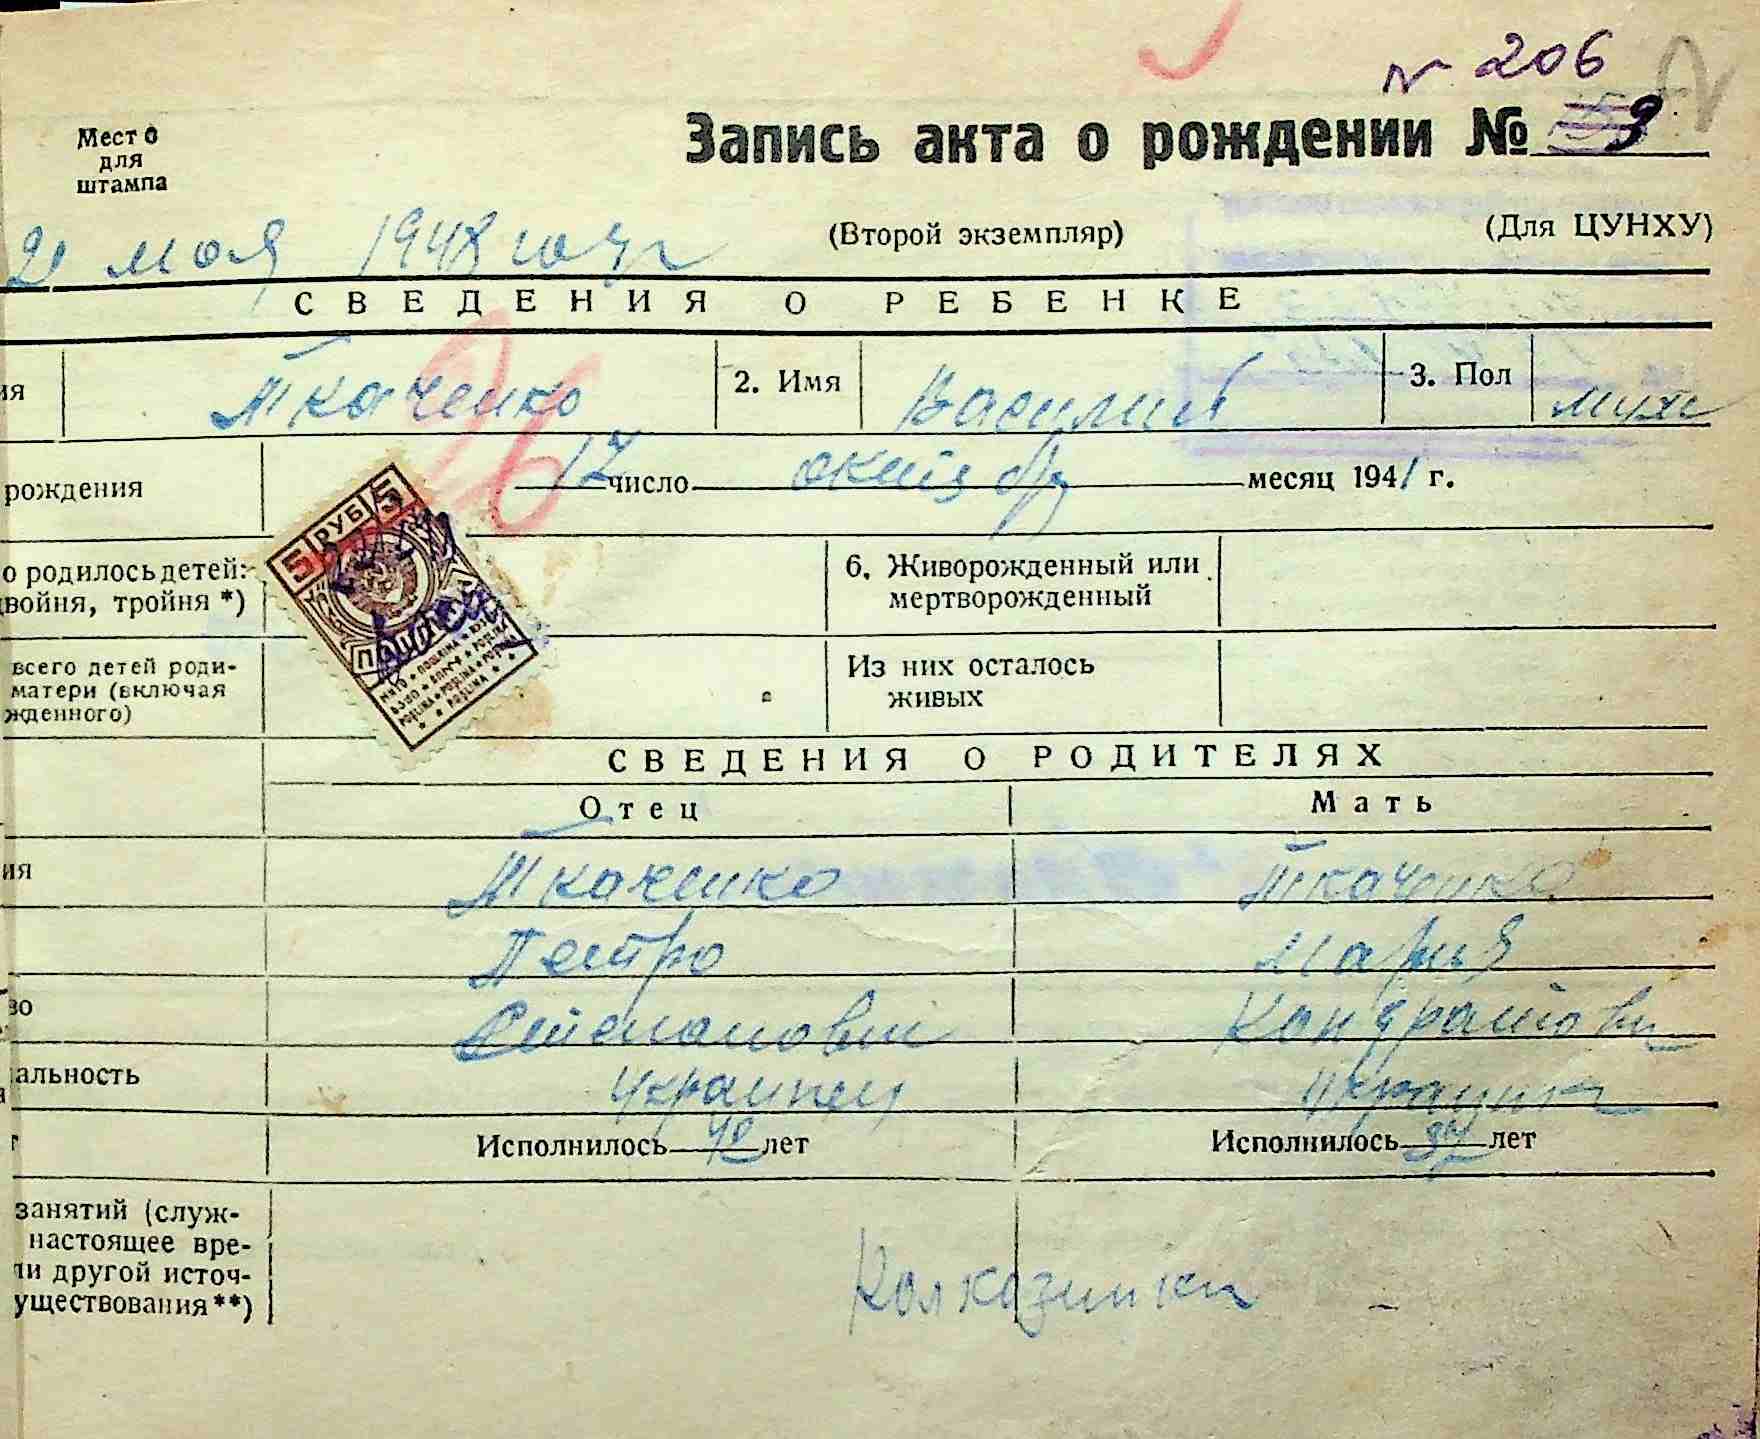 № 206
Место
для
штампа
Запись акта о рождении № 9
21 мая 1948 года
(Второй экземпляр)
(Для ЦУНХУ)
СВЕДЕНИЯ О РЕБЕНКЕ
ия Ткаченко 2. Имя Василий 3. Пол муж
рождения 17 число октября месяц 1941 г.
о родилось детей:
войня, тройня *)
6. Живорожденный или
мертворожденный
всего детей роди-
матери (включая
жденного)
Из них осталось
живых
5 РУБ 5
СВЕДЕНИЯ О РОДИТЕЛЯХ
Отец Мать
ия Ткаченко Ткаченко
Петро Мария
во Степанович Кондратовн
альность украинец украинка
Исполнилось 40 лет Исполнилось 34 лет
занятий (служ-
настоящее вре-
ли другой источ-
уществования **)
Колхозники